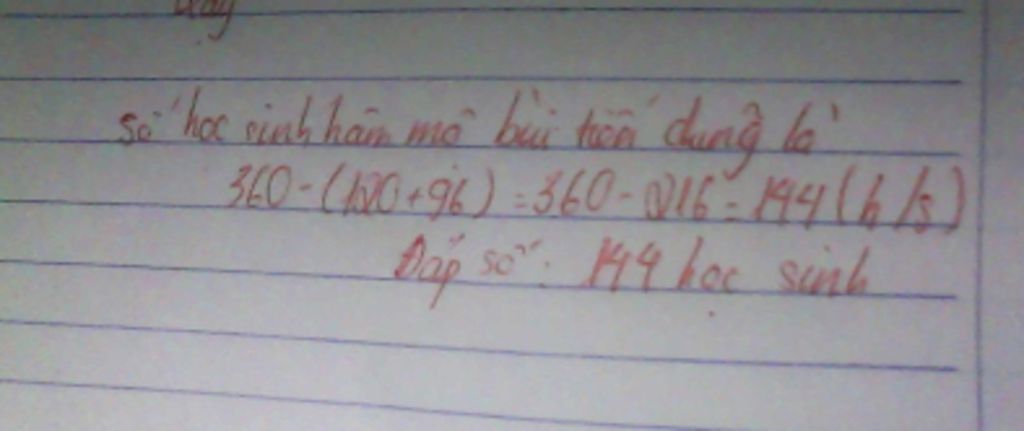 số học sinh hâm mộ bùi tiến dung là
360-(120+96)=360-216=144(h/s)
Đáp số: 144 học sinh